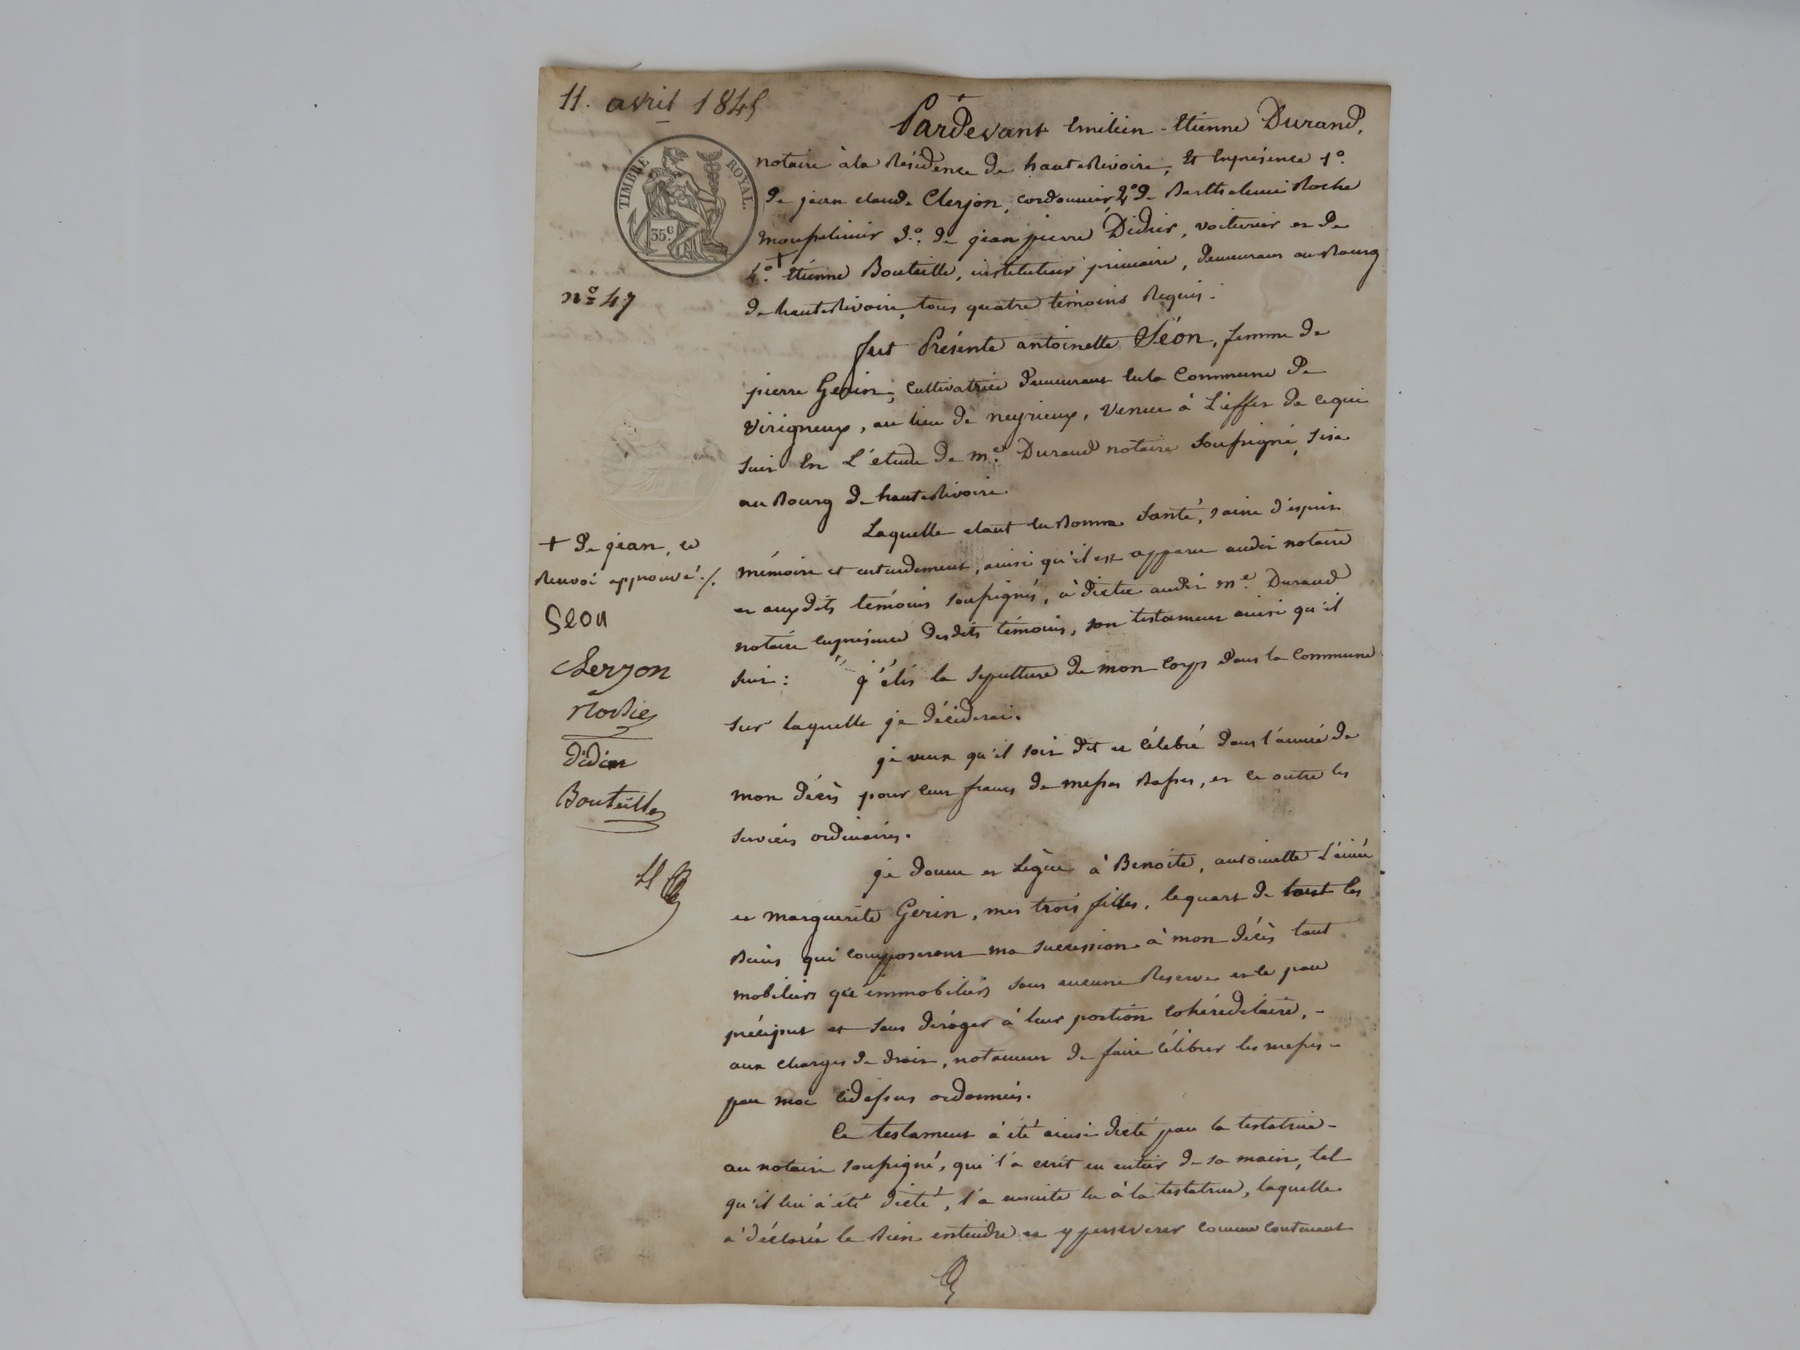 11. avril 1845
TIMBRE ROYAL.
35.c
n.o 47
Pardevant Emilien-Etienne Durand,
notaire à la Résidence de haute Rivoire, Et En présence 1.o
de jean claude Clerjon, cordonnier, 2.o de Barthelemi Roche
3.o de jean pierre Didier, voiturier et de
4.o + Etienne Bouteille, instituteur primaire, demeurans au Bourg
de haute Rivoire, tous quatre témoins Requis.
fut Présente antoinette Séon, femme de
pierre Gerin, Cultivatrice demeurant En la Commune de
virigneux, au lieu de neyrieux, venue à L'effet de ce qui
suit En L'étude de m.e Durand notaire Soussigné, sise
au Bourg de haute Rivoire.
Laquelle etant En Bonne Santé, saine d'esprit
mémoire et entendement, ainsi qu'il est apparu audit notaire
et auxdits témoins soussignés, à dicté audit m.e Durand
notaire en présence desdits témoins, son testament ainsi qu'il
suit : j'élis la sepulture de mon Corps dans la Commune
sur laquelle je déciderai.
je veux qu'il soit dit et célébré dans l'année de
mon décès pour cent francs de messes Basses, et ce outre les
services ordinaires.
je donne et Lègue à Benoite, antoinette L'ainée
et marguerite Gerin, mes trois filles, le quart de tout les
Biens qui composeront ma succession à mon décès tant
mobiliers qu'immobiliers sans aucune Reserve et ce par
préciput et sans déroger à leur portion Cohéréditaire, -
aux charges de droit, notamment de faire célébrer les messes -
par moi cidessus ordonnées.
Ce testament à été ainsi dicté par la testatrice -
au notaire soussigné, qui l'a écrit en entier de sa main, tel
qu'il lui à été dicté, l'a ensuite lu à la testatrice, laquelle
a déclaré le Bien entendre et y perseverer comme contenant
+ de jean, et
Renvoi approuvé ./.
Seon
Clerjon
Roche
Didier
Bouteille